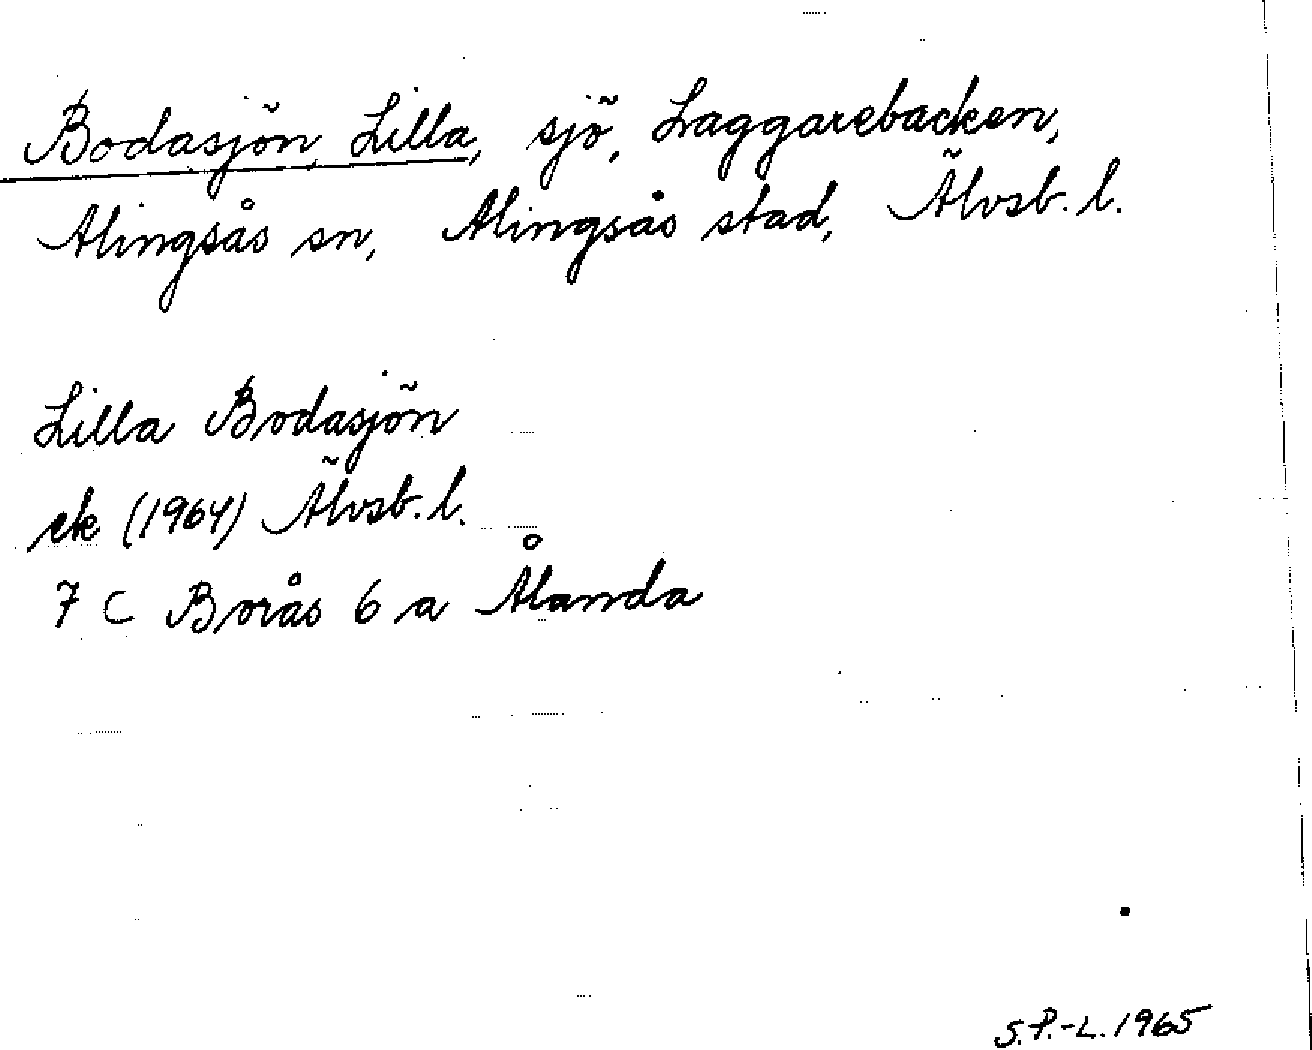 Bodasjön, Lilla, sjö, Laggarebacken,
Alingsås sn, Alingsås stad, Älvsb. l.
Lilla Bodasjön
ek (1964) Älvsb. l.
7 C Borås 6 a Ålanda
S.P.-L. 1965